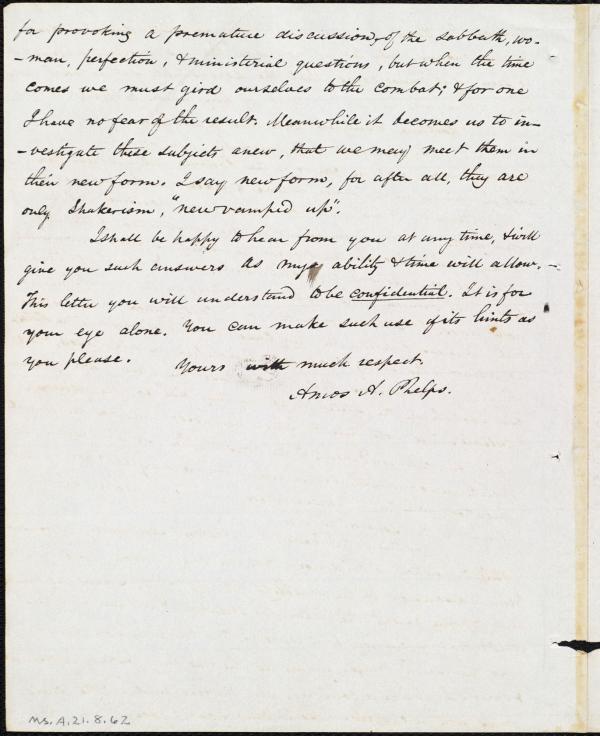 for provoking a premature discussion, of the sabbath, wo-
-man, perfection, & ministerial questions, but when the time
comes we must gird ourselves to the combat; & for one
I have no fear of the result. Meanwhile it becomes us to in-
-vestigate these subjects anew, that we may meet them in
their new form. I say new form, for after all, they are
only Shakerism, "new vamped up".
I shall be happy to hear from you at any time, & will
give you such answers as my ability & time will allow.
This letter you will understand to be confidential. It is for
your eye alone. You can make such use of its hints as
you please.
Yours with much respect.
Amos A. Phelps.
Ms. A. 21. 8. 62